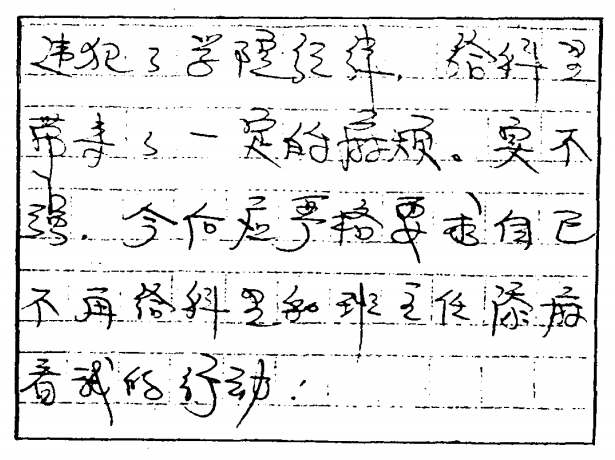 违犯了学院纪律，给科里
带来了一定的麻烦。实不
强．今后应严格要求自己
不再给科里和班主任添麻
看我的行动！